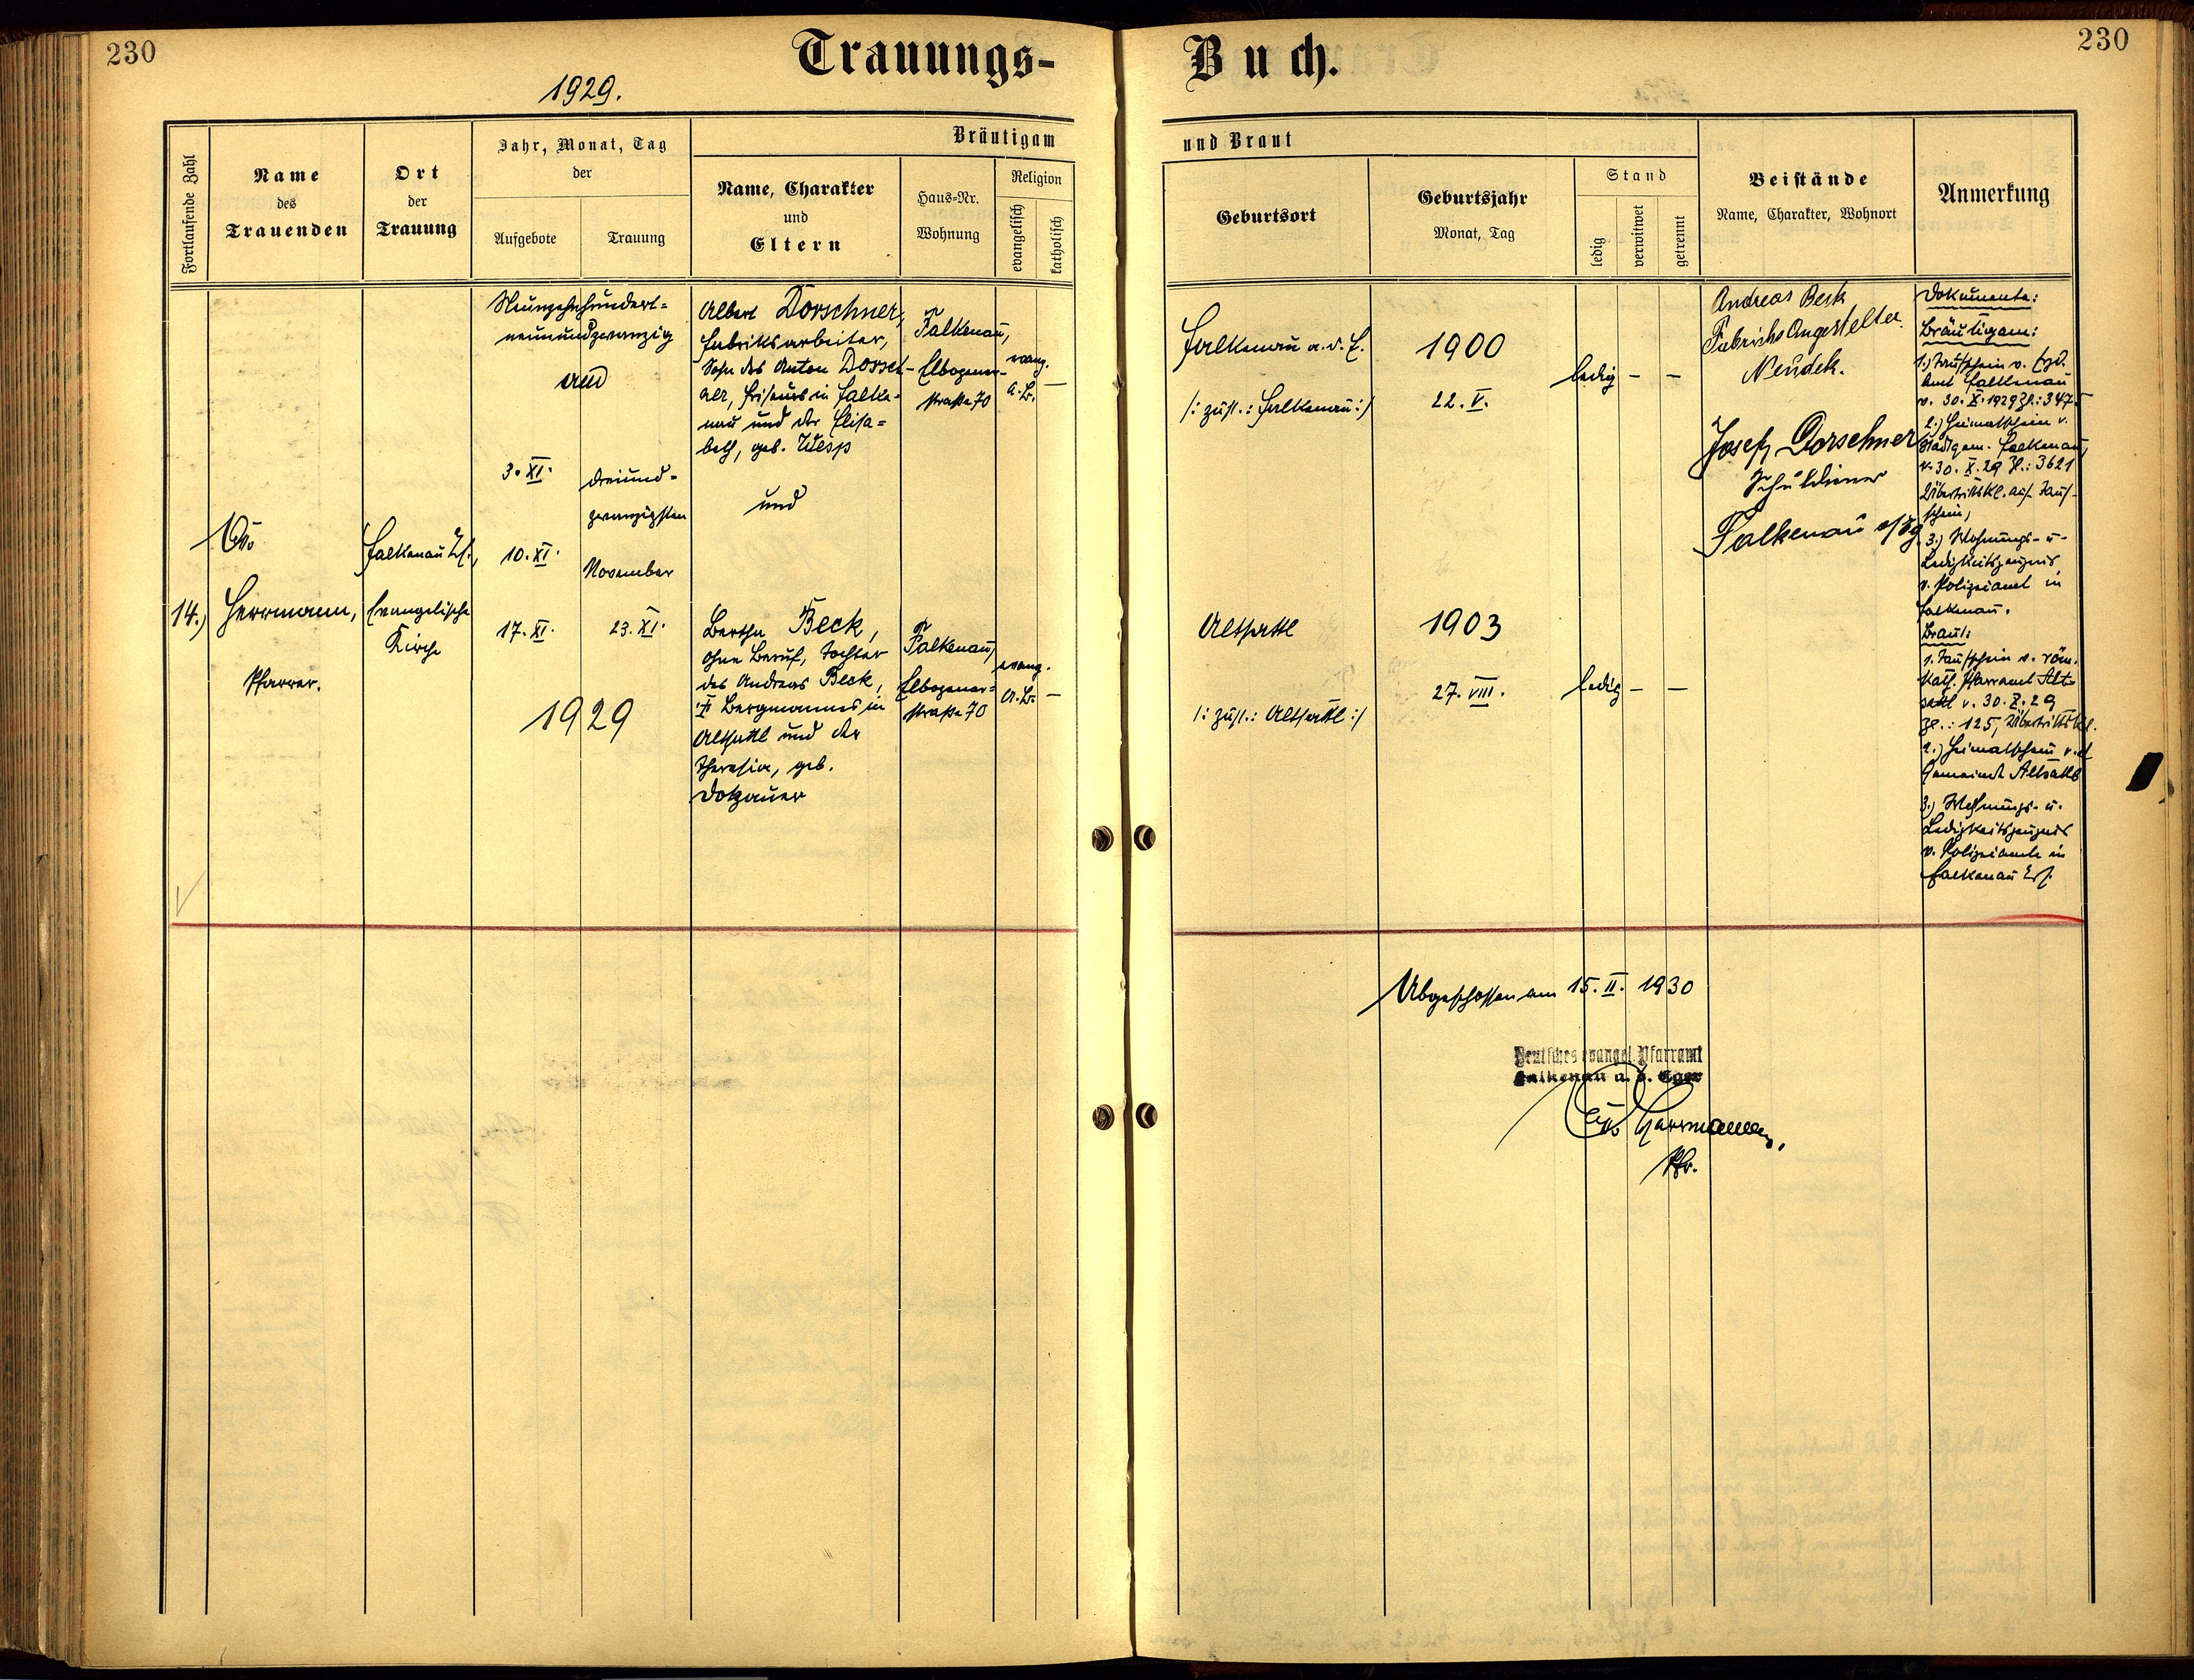 230
Trauungs-
Buch.
230
1929.
Fortlaufende Zahl
Name
des
Trauenden
Ort
der
Trauung
Jahr, Monat, Tag
der
Aufgebote
Trauung
Bräutigam
Name, Charakter
und
Eltern
Haus-Nr.
Wohnung
Religion
evangelisch
katholisch
und Braut
Geburtsort
Geburtsjahr
Monat, Tag
Stand
ledig
verwitwet
getrennt
Beistände
Name, Charakter, Wohnort
Anmerkung
14.)
Herrmann,
Pfarrer.
Falkenau
Evangelische
Kirche
Neunzehnhundert-
neunundzwanzig
3. XI.
10. XI.
17. XI.
dreiund-
zwanzigsten
November
23. XI.
1929
Albert Dorschner,
Fabriksarbeiter,
Sohn des Anton Dorsch-
ner, Friseurs in Falke-
nau und der Elisa-
beth, geb. Wesp
und
Bertha Beck,
ohne Beruf, Tochter
des Andreas Beck,
Bergmannes in
Altsattl und der
Theresia, geb.
Dotzauer
Falkenau,
Elbogener-
straße 70
evang.
A.B. –
Falkenau,
Elbogener-
straße 70
evang.
A.B. –
Falkenau a. d. E.
/: zust.: Falkenau :/
1900
22. V.
ledig – –
Altsattl
/: zust.: Altsattl :/
1903
27. VIII.
ledig – –
Andreas Beck
Fabriks Angestellter
Neudek.
Josef Dorschner
Schuldiener
Falkenau a/Eg.
Dokumente:
Bräutigam:
1.) Taufschein v.
Amt Falkenau
v. 30. X. 1929 Zl.: 347
2.) Heimatschein v.
Stadtgem. Falkenau
v. 30. X. 29 Zl.: 3621
Übertrittskl. auf Tauf-
schein,
3.) Wohnungs- u-
Ledigkeitszeugnis
v. Polizeiamt in
Falkenau.
Braut:
1. Taufschein v. röm.
kath. Pfarramt Alt-
sattl v. 30. X. 29
Zl.: 125, Übertrittskl.
2.) Heimatschein v. d
Gemeinde Altsattl
3.) Wohnungs- u.
Ledigkeitszeugnis
v. Polizeiamte in
Falkenau
Abgeschlossen am 15. II. 1930
Deutsches evangel. Pfarramt
Falkenau a. d. Eger
Herrmann,
Pfr.